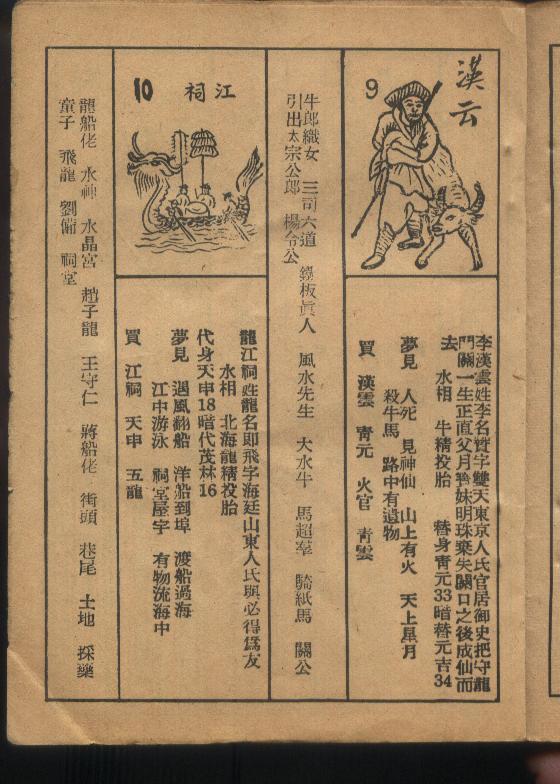 漢云
9
李漢雲姓李名贊字雙天東京人氏官居御史把守龍
門關一生正直父月舅妹明珠棄失關口之後成仙而
去　水相　牛精投胎　替身靑元33暗替元吉34
夢見　人死　見神仙　山上有火　天上星月
殺牛馬　路中有遺物
買　漢雲　靑元　火官　靑雲
牛郎織女　三司六道　鐵板眞人　風水先生　大水牛　馬超羣　騎紙馬　關公
引出太宗公郎　楊令公
江祠
10
龍江祠姓龍名即飛字海廷山東人氏與必得爲友
水相　北海龍精投胎
代身天申18暗代茂林16
夢見　遇風翻船　洋船到埠　渡船過海
江中游泳　祠堂屋宇　有物流海中
買　江祠　天申　五龍
龍船佬　水神　水晶宮　趙子龍　王守仁　蔣船佬　街頭　巷尾　土地　採樂
童子　飛龍　劉備　祠堂